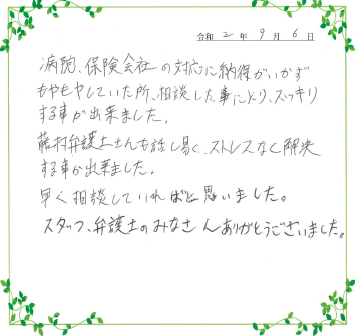 令和 2 年 9 月 6 日
病院、保険会社の対応に納得がいかず
もやもやしていた所、相談した事により、スッキリ
する事が出来ました。
藤村弁護士さんも話し易く、ストレスなく解決
する事が出来ました。
早く相談していればと思いました。
スタッフ、弁護士のみなさんありがとうございました。